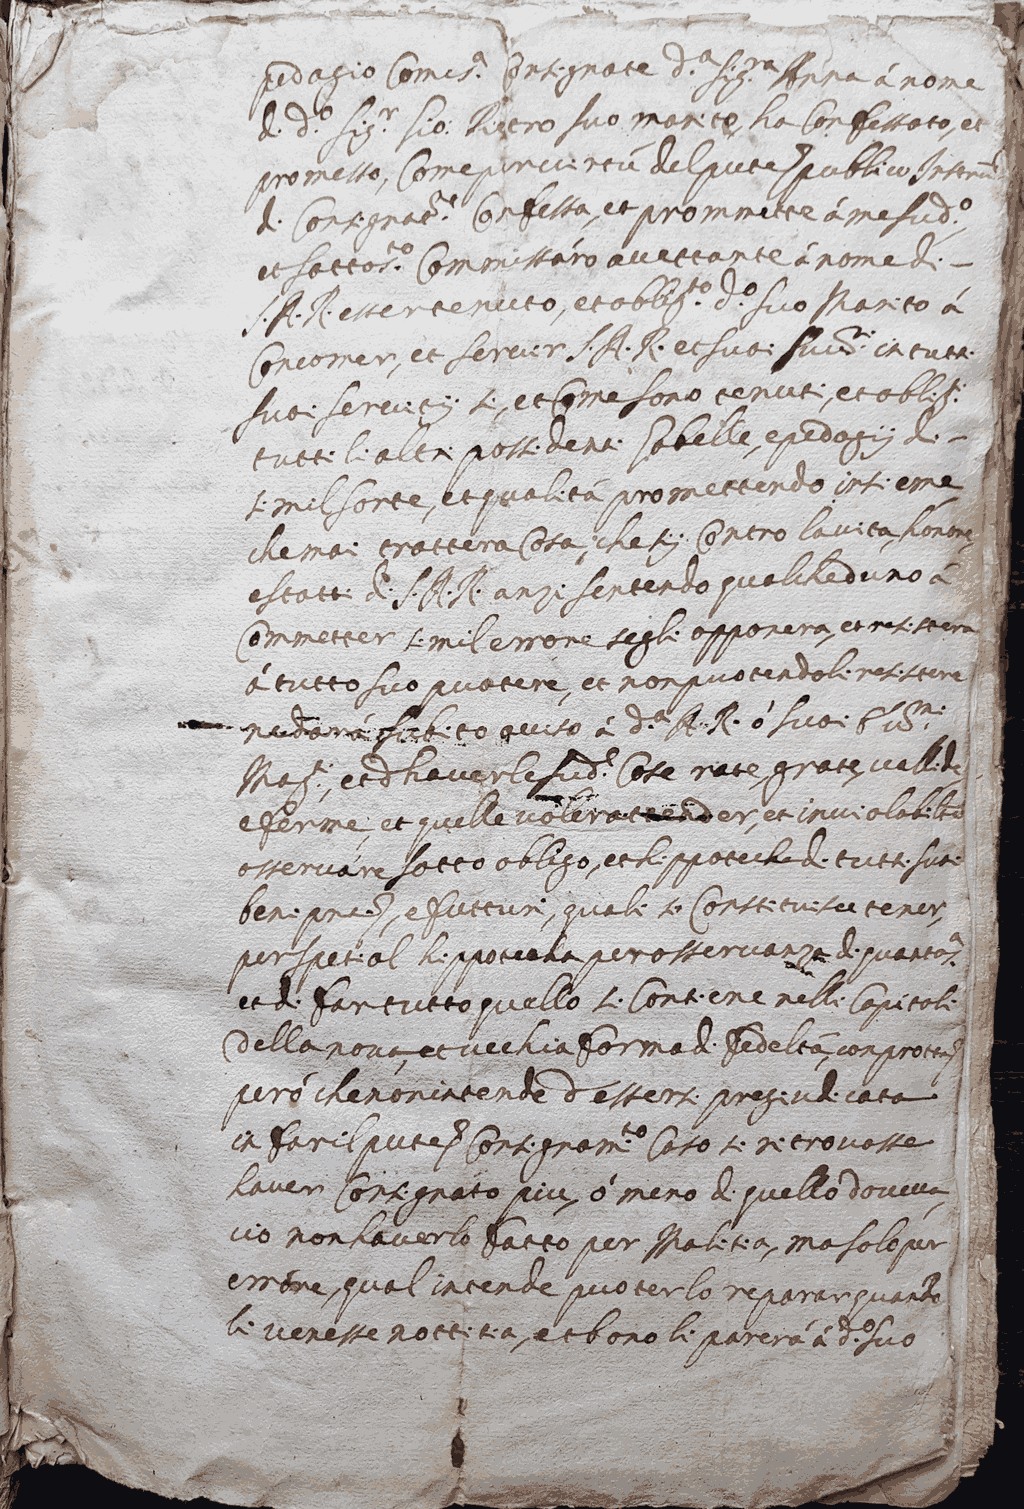 pedagio Come s.ª Consignate d.ª Sig.ra Anna á nome
di d.º Sig.r Gio: Pietro suo marito, ha Confessato, et
promesso, Come per virtú del pnte publico Instru.
di Consignat.e Confessa, et promette á me sud.º
et sottos.to Commissáro accettante á nome di –
S. A. R. esser tenuto, et oblig.to d.º suo Marito á
Conoscer, et servir S. A. R. et suoi Succ.ri in tutti
suoi servitij si, et Come sono tenuti, et oblig.ti
tutti li altri possidenti Gabelle, e pedagij di –
simil sorte, et qualitá promettendo insieme
che mai trattera Cosa, che sij Contro la vita, honore,
e stati di S. A. R. anzi sentendo qualcheduno á
Commetter simil errore segli opponera, et resistera
á tutto suo puotere, et non puotendoli resistere
ne dará subito aviso á d.ª A. R. ó suoi
Mag.ti, et d'haver le sud.e Cose rate, grate, vallide
e ferme, et quelle voler attender, et inviolabil.te
osserváre sotto obligo, et hippotecha di tutti suoi
beni pnti, e futturi, quali si Constituisce tener,
per spetial hippotecha per osservanza di quanto s.ª
et di far tutto quello si Contiene nelli Capitoli
della nova, et vechia forma di fedeltá, con protta
peró che non intende d'essersi pregiudicata
in far il pnte Consignam.to Caso si ritrovasse
haver Consignato piu, ó meno di quello doveva,
cio non haverlo fatto per Malitia, ma solo per
errore, qual intende puoterlo reparar quando
li venesse nottitia, et bono li parerá á d.º suo